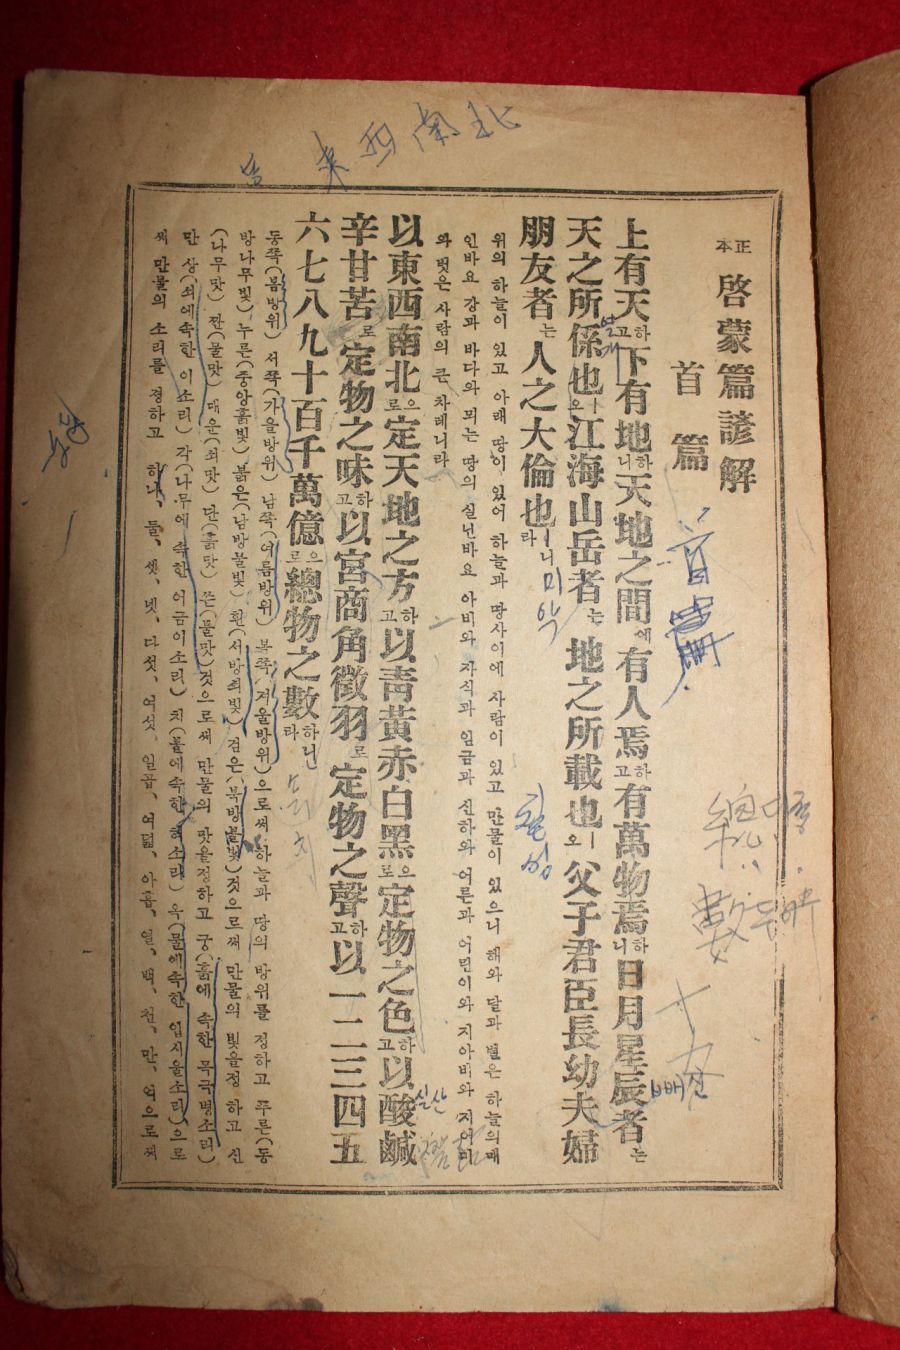 正本 啓蒙篇諺解
首篇
上有天하고下有地하니天地之間에有人焉하고有萬物焉하니日月星辰者는
天之所係也ㅣ오江海山岳者는地之所載也ㅣ오父子君臣長幼夫婦
朋友者는人之大倫也ㅣ니라
위의 하늘이 있고 아래 땅이 있어 하늘과 땅사이에 사람이 있고 만물이 있으니 해와 달과 별은 하늘의매
인바요 강과 바다와 뫼는 땅의 실닌바요 아비와 자식과 임금과 신하와 어른과 어린이와 지아비와 지어미
와 벗은 사람의 큰 차례니라
以東西南北으로定天地之方하고以靑黃赤白黑으로定物之色하고以酸鹹
辛甘苦로定物之味하고以宮商角徵羽로定物之聲하고以一二三四五
六七八九十百千萬億으로總物之數하나니라
동쪽(봄방위) 서쪽(가을방위) 남쪽(여름방위) 북쪽(겨울방위)으로써 하늘과 땅의 방위를 정하고 푸른(동
방나무빛) 누른(중앙흙빛) 붉은(남방불빛) 흰(서방쇠빛) 검은(북방물빛)것으로써 만물의 빛을정하고 신
(나무맛) 짠(물맛) 매운(쇠맛) 단(흙맛) 쓴(불맛)것으로써 만물의 맛을정하고 궁(흙에 속한 목구병소리)
만 상(쇠에속한 이소리) 각(나무에 속한 어금이소리) 치(불에속한 혀소리) 우(물에속한 입시울소리)으로
써 만물의 소리를 정하고 하나, 둘, 셋, 넷, 다섯, 여섯, 일곱, 여덟, 아홉, 열, 백, 천, 만, 억으로써
東西南北
首篇
總
數